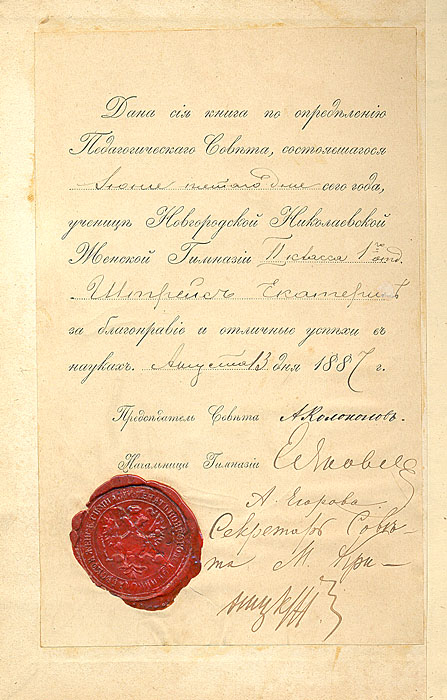 Дана сія книга по опредѣленію
Педагогическаго Совѣта, состоявшагося
Іюня пятаго дня сего года,
ученицѣ Новгородской Николаевской
Женской Гимназіи II класса 1го отд.
Штрейсъ Екатеринѣ
за благонравіе и отличные успѣхи въ
наукахъ. Августа 13 дня 1887 г.
Предсѣдатель Совѣта А. Колоколовъ.
Начальница Гимназіи
А. Егорова
Секретарь Совѣ-
та М.